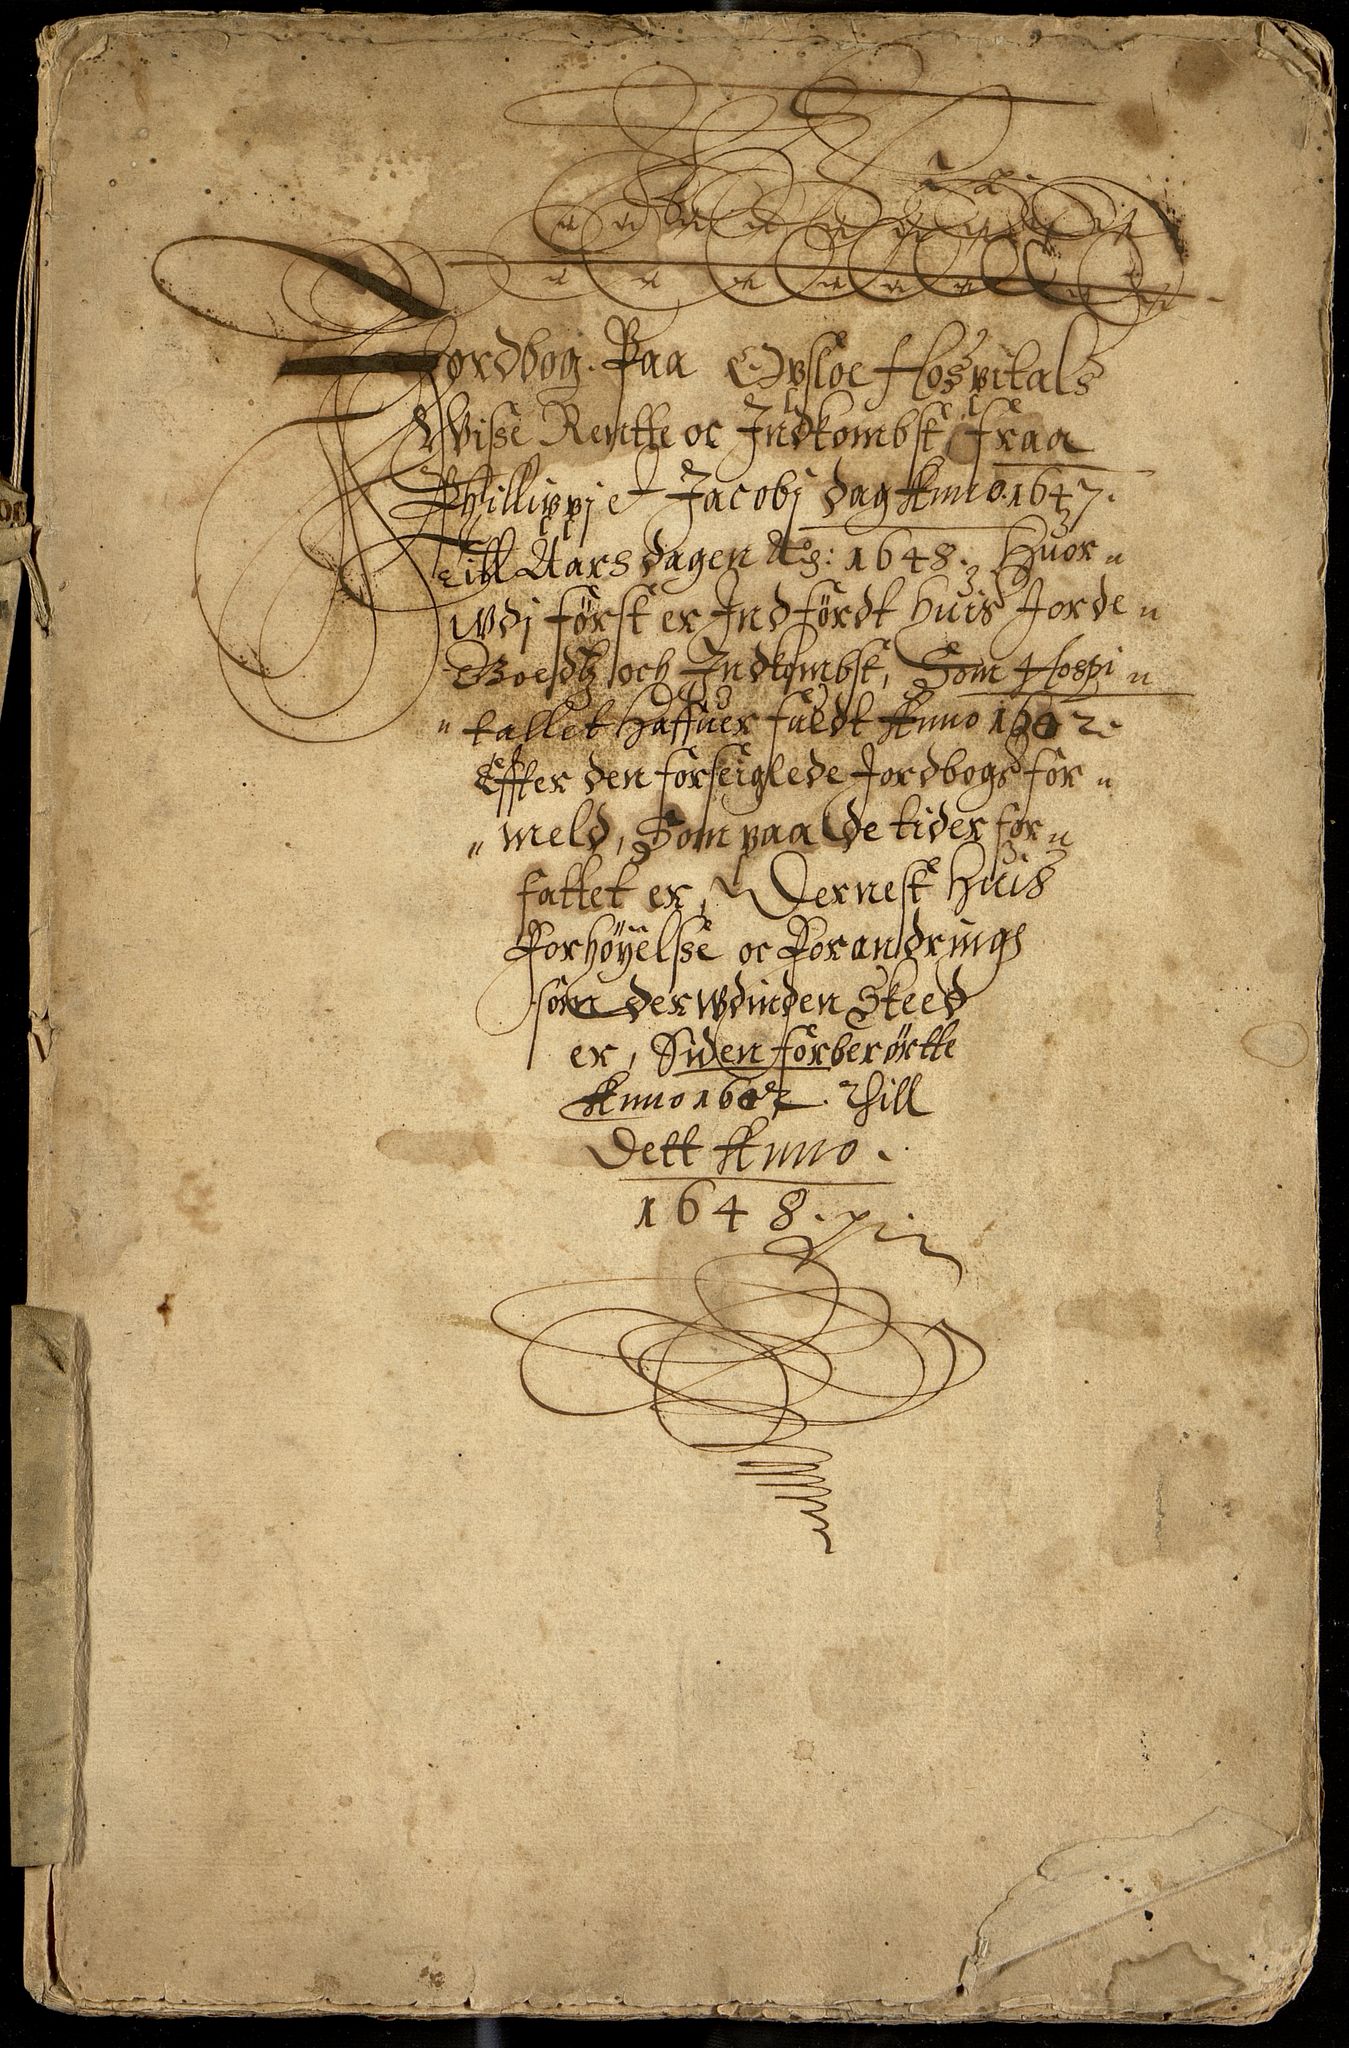 Jordbog. Paa Opsloe Hospitals
Wisse Rentte oc Indkombst fraa
Phillippi et Jacobj dag Anno. 1647.
Till Aars dagen Ao: 1648. Huor "
udj först er Indfördt huis Jorde "
Goedtz och Indkombst, Som Hospi "
" tallet haffuer fuldt Anno 1602.
Effter den forseiglede Jordbogs for "
" meld, Som paa de tider for "
fattet er, Dernest Huis
Forhöyelse oc Forandrings
som der udinden Skeed
er, Siden förberörtte
Anno 1602. Thill
Dett Anno.
1648.